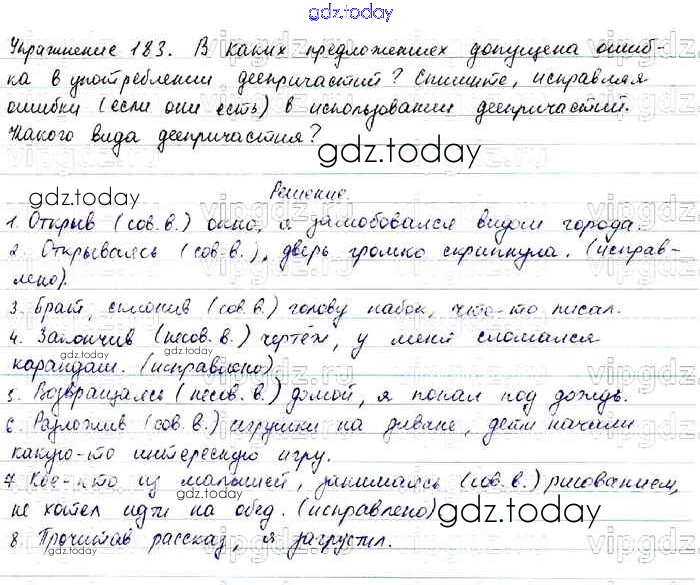 gdz.today
Упражнение 183. В каких предложениях допущена ошиб-
ка в употреблении деепричастий? Спишите, исправляя
ошибки (если они есть) в использовании деепричастий.
Какого вида деепричастия?
gdz.today
Решение.
gdz.today
1. Открыв (сов.в.) окно, я залюбовался видом города.
2. Открываясь (сов.в.), дверь громко скрипнула. (исправ-
лено).
3. Брат, склонив (сов.в.) голову набок, что-то писал.
4. Закончив (несов.в.) чертёж, у меня сломался
gdz.today
карандаш. (исправлено).
5. Возвращаясь (несов.в.) домой, я попал под дождь.
6. Разложив (сов.в.) игрушки на диване, дети начали
какую-то интересную игру.
7. Кое-кто из малышей, занимаясь (сов.в.) рисованием,
gdz.today
не хотел идти на обед. (исправлено)
gdz.today
8. Прочитав рассказ, я загрустил.